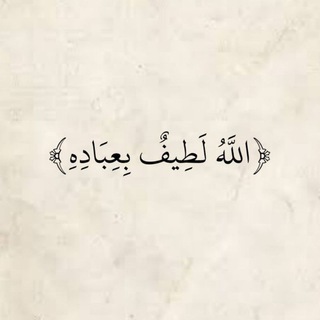 ﴿اللَّهُ لَطِيفٌ بِعِبَادِهِ﴾